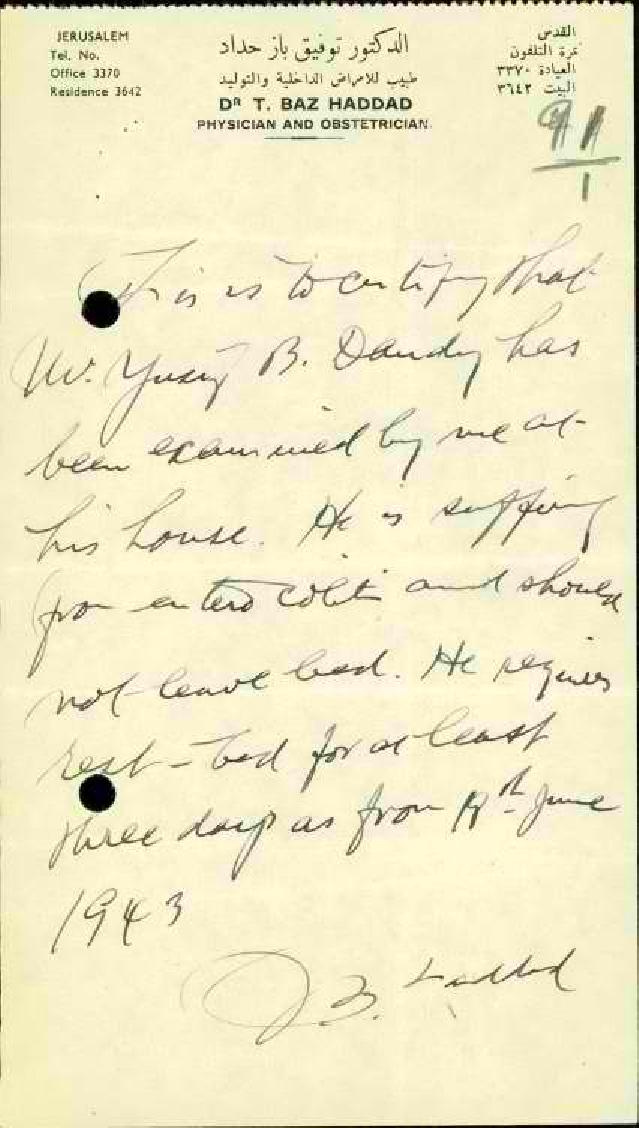 JERUSALEM
Tel. No.
Office 3370
Residence 3642
الدكتور توفيق باز حداد
طبيب للامراض الداخلية والتوليد
DR T. BAZ HADDAD
PHYSICIAN AND OBSTETRICIAN
القدس
نمرة التلفون
العيادة ٣٣٧٠
البيت ٣٦٤٢
91
1
This is to certify that
Mr. Yusif B. Dandy has
been examined by me at
his house. He is suffring
from entero colitis and should
not leave bed. He requires
rest - bed for at least
three days as from June
1943
T B. Haddad